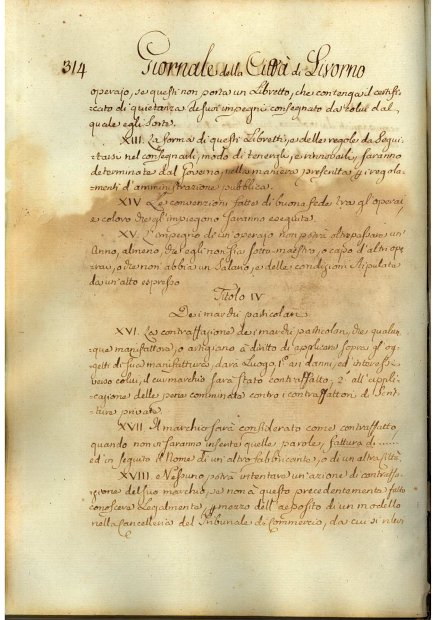 314 Giornale della Città di Livorno
operajo, se questi non porta un Libretto, che contenga il certifi
cato di quietanza de suoi impegni consegnato da colui dal
quale egli sorte.
XIII. La forma di questi Libretti, e delle regole da Segui
tarsi nel consegnarli, modo di tenergli, e rinnovarli, saranno
determinate dal Governo, nella maniera prescritta p i regola
menti d'amministrazione pubblica.
XIV. Le convenzioni fatte di buona fede tra gl'operai,
e coloro che gl'impiegono saranno eseguite.
XV. L'impegno de un operajo non potrà oltrepassare un'
Anno, almeno, che egli non sia sotto maestro, o capo d'altri ope
raj, o che non abbia un Salario, e delle condizioni stipulate
da un'atto espresso
Titolo IV
Dei marchi particolari
XVI. La contraffazione dei marchi particolari, che qualun
que manifattore, o artigiano à diritto di applicare sopra gl'og
getti di sue manifatture, darà Luogo, 1º ai danni, ed interessi
verso colui, il cui marchio sarà stato contraffatto, 2º all'appli
cazione delle pene comminate contro i contraffattori di Scrit
ture private.
XVII. Il marchio sarà considerato come contraffatto,
quando non vi saranno inserite quelle parole, fattura di ......
ed in seguito il Nome di un'altro fabbricante, o di un altra Città.
XVIII. Nessuno potrà intentare un'azione di contraffa
zione del suo marchio, se non à questo precedentemente fatto
conoscere Legalmente p mezzo dell'deposito di un modello
nella Cancelleria del Tribunale di Commercio, da cui si